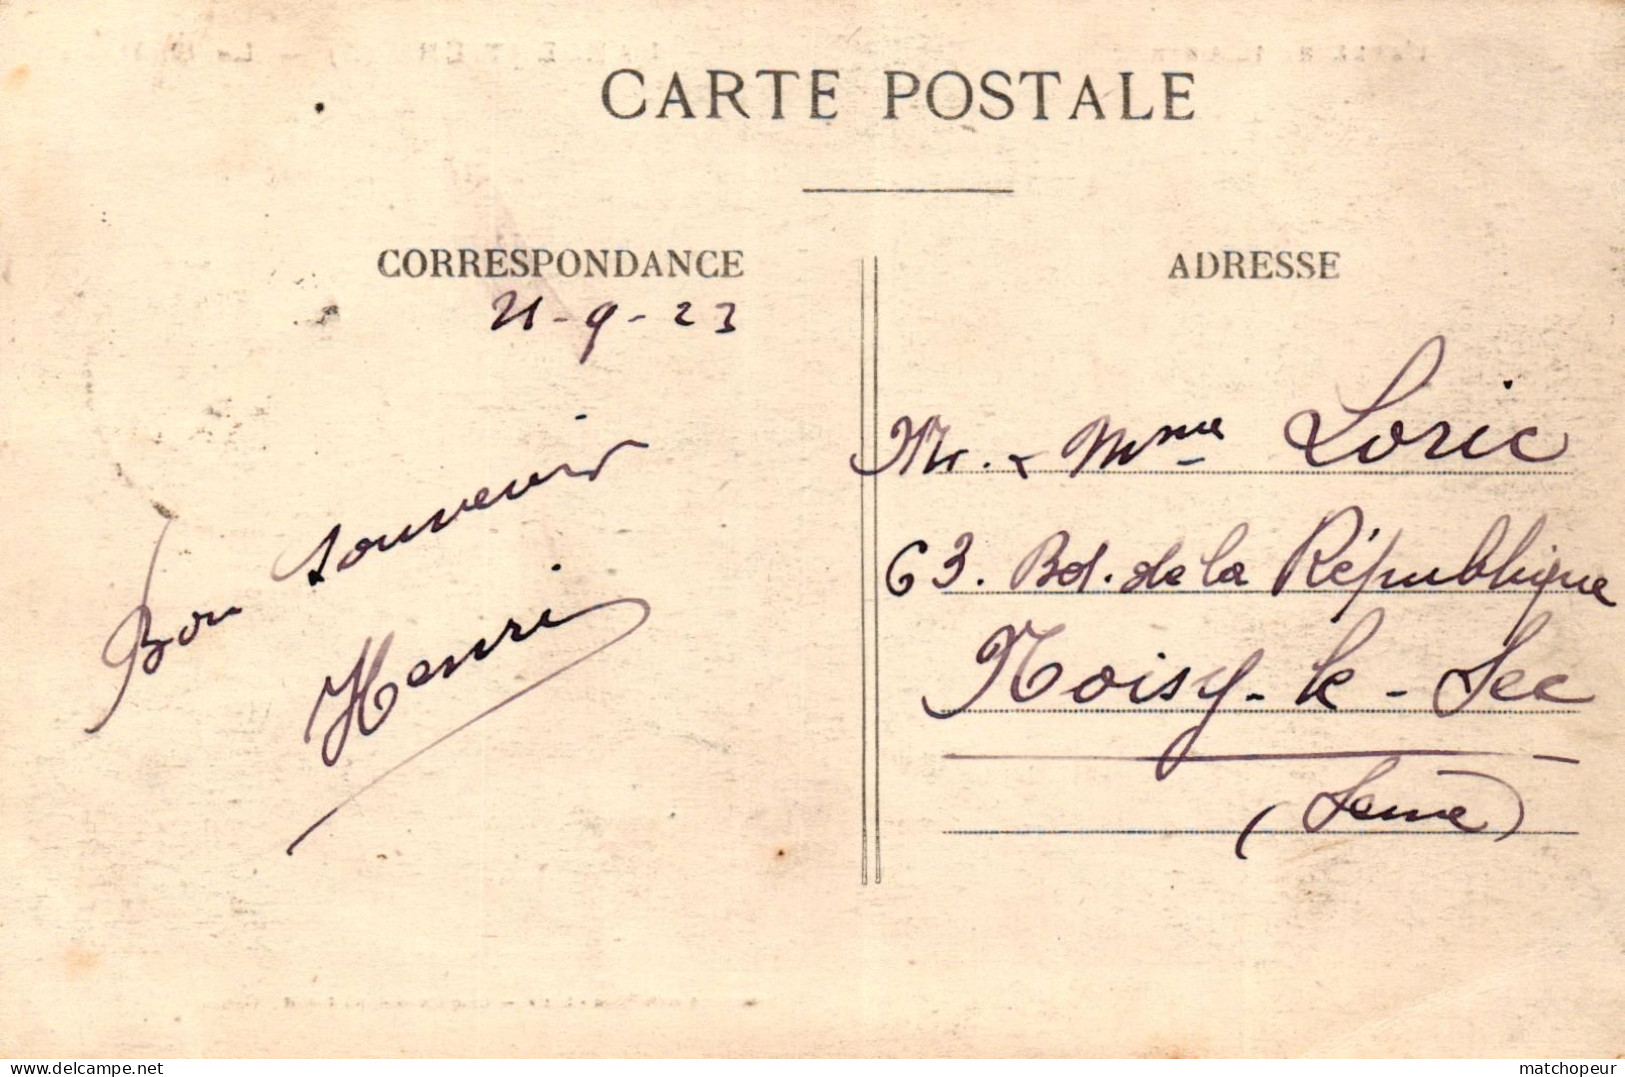 CARTE POSTALE
CORRESPONDANCE
21-9-23
Bon souvenir
Henri
ADRESSE
Mr. & Mme Loric
63. Bd. de la République
Noisy-le-Sec
(Seine)
www.delcampe.net
matchopeur